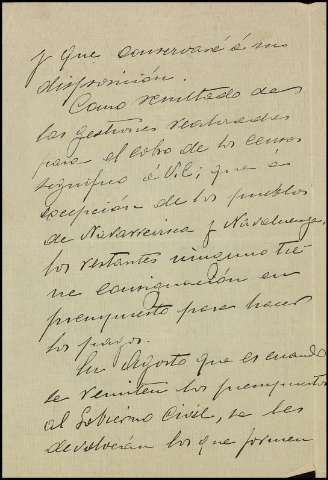 y que conservaré á su
disposición.
Como resultado de
las gestiones realizadas
para el cobro de los censos
significo á Vd; que a
excepción de los pueblos
de Navarrevisca y Navaluenga,
los restantes ninguno tie-
ne consignación en
presupuesto para hacer
los pagos.
En Agosto que es cuando
se remiten los presupuestos
al Gobierno Civil, se les
devolverán los que formen